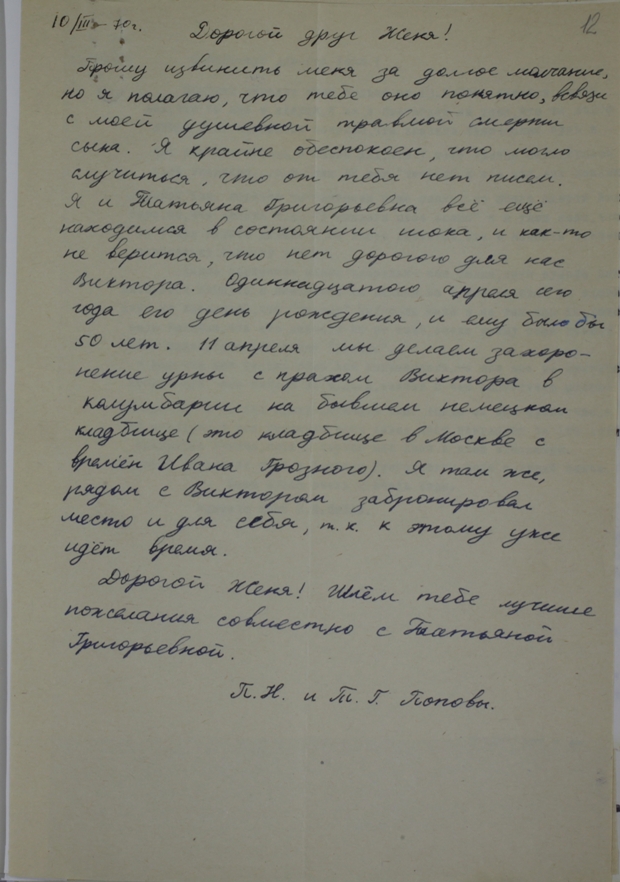 10/III-70г. 12
Дорогой друг Женя!
Прошу извинить меня за долгое молчание,
но я полагаю, что тебе оно понятно, всвязи
с моей душевной травмой смерти
сына. Я крайне обеспокоен, что могло
случиться, что от тебя нет писем.
Я и Татьяна Григорьевна всё ещё
находимся в состоянии шока, и как-то
не верится, что нет дорогого для нас
Виктора. Одиннадцатого апреля сего
года его день рождения, и ему было бы
50 лет. 11 апреля мы делаем захоро-
нение урны с прахом Виктора в
колумбарии на бывшем немецком
кладбище (это кладбище в Москве с
времён Ивана Грозного). Я там же,
рядом с Виктором забронировал
место и для себя, т.к. к этому уже
идёт время.
Дорогой Женя! Шлём тебе лучшие
пожелания совместно с Татьяной
Григорьевной.
П.Н. и Т.Г. Поповы.